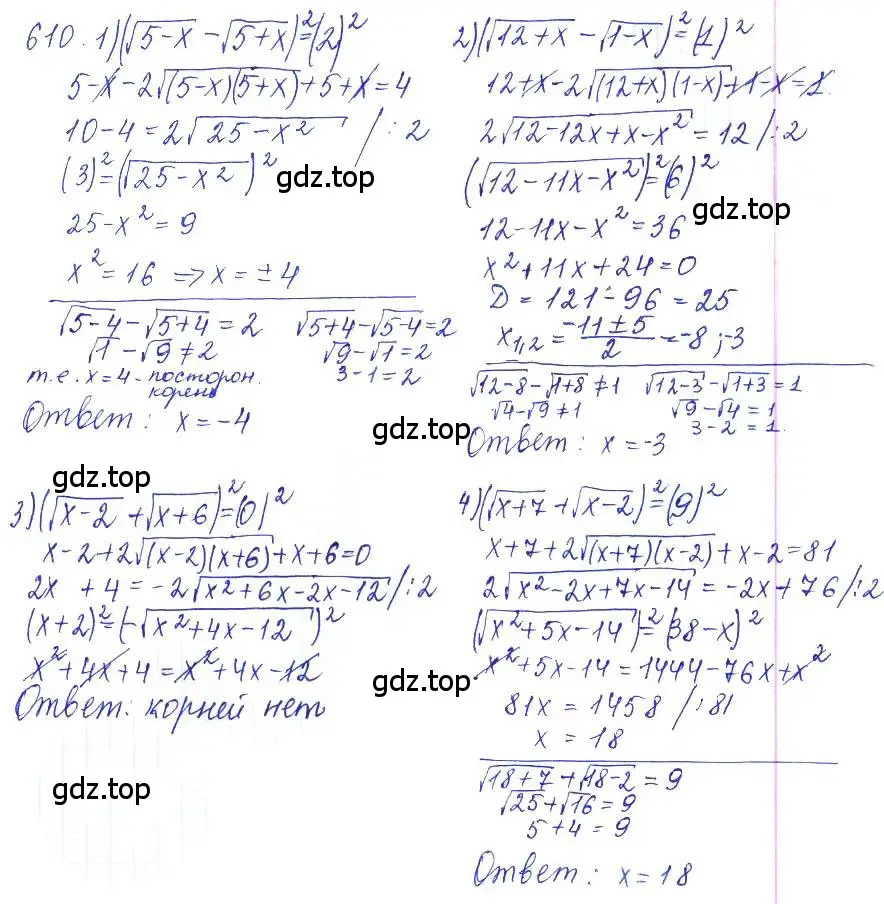 610. 1) (√5-x - √5+x)² = (2)²
5-x-2√(5-x)(5+x)+5+x=4
10-4=2√25-x² /:2
(3)²=(√25-x²)²
gdz.top
25-x²=9
x²=16 => x=±4
√5-4-√5+4=2 √5+4-√5-4=2
√1-√9≠2 √9-√1=2
т.е. x=4-посторон. 3-1=2
корень
Ответ: x=-4
2) (√12+x - √1-x)²=(1)²
12+x-2√(12+x)(1-x)+1-x=1
2√12-12x+x-x²=12 /:2
(√12-11x-x²)²=(6)²
gdz.top
12-11x-x²=36
x²+11x+24=0
D=121-96=25
x1,2=-11±5/2=-8;-3
√12-8-√1+8≠1 √12-3-√1+3=1
√4-√9≠1 √9-√4=1
gdz.top
3-2=1.
Ответ: x=-3
gdz.top
3) (√x-2+√x+6)²=(0)²
x-2+2√(x-2)(x+6)+x+6=0
2x+4=-2√x²+6x-2x-12 /:2
(x+2)²=(-√x²+4x-12)²
x²+4x+4=x²+4x-12
Ответ: корней нет
gdz.top
4) (√x+7+√x-2)²=(9)²
x+7+2√(x+7)(x-2)+x-2=81
2√x²-2x+7x-14=-2x+76 /:2
(√x²+5x-14)²=(38-x)²
gdz.top
x²+5x-14=1444-76x+x²
81x=1458 /:81
x=18
√18+7+√18-2=9
√25+√16=9
5+4=9
Ответ: x=18